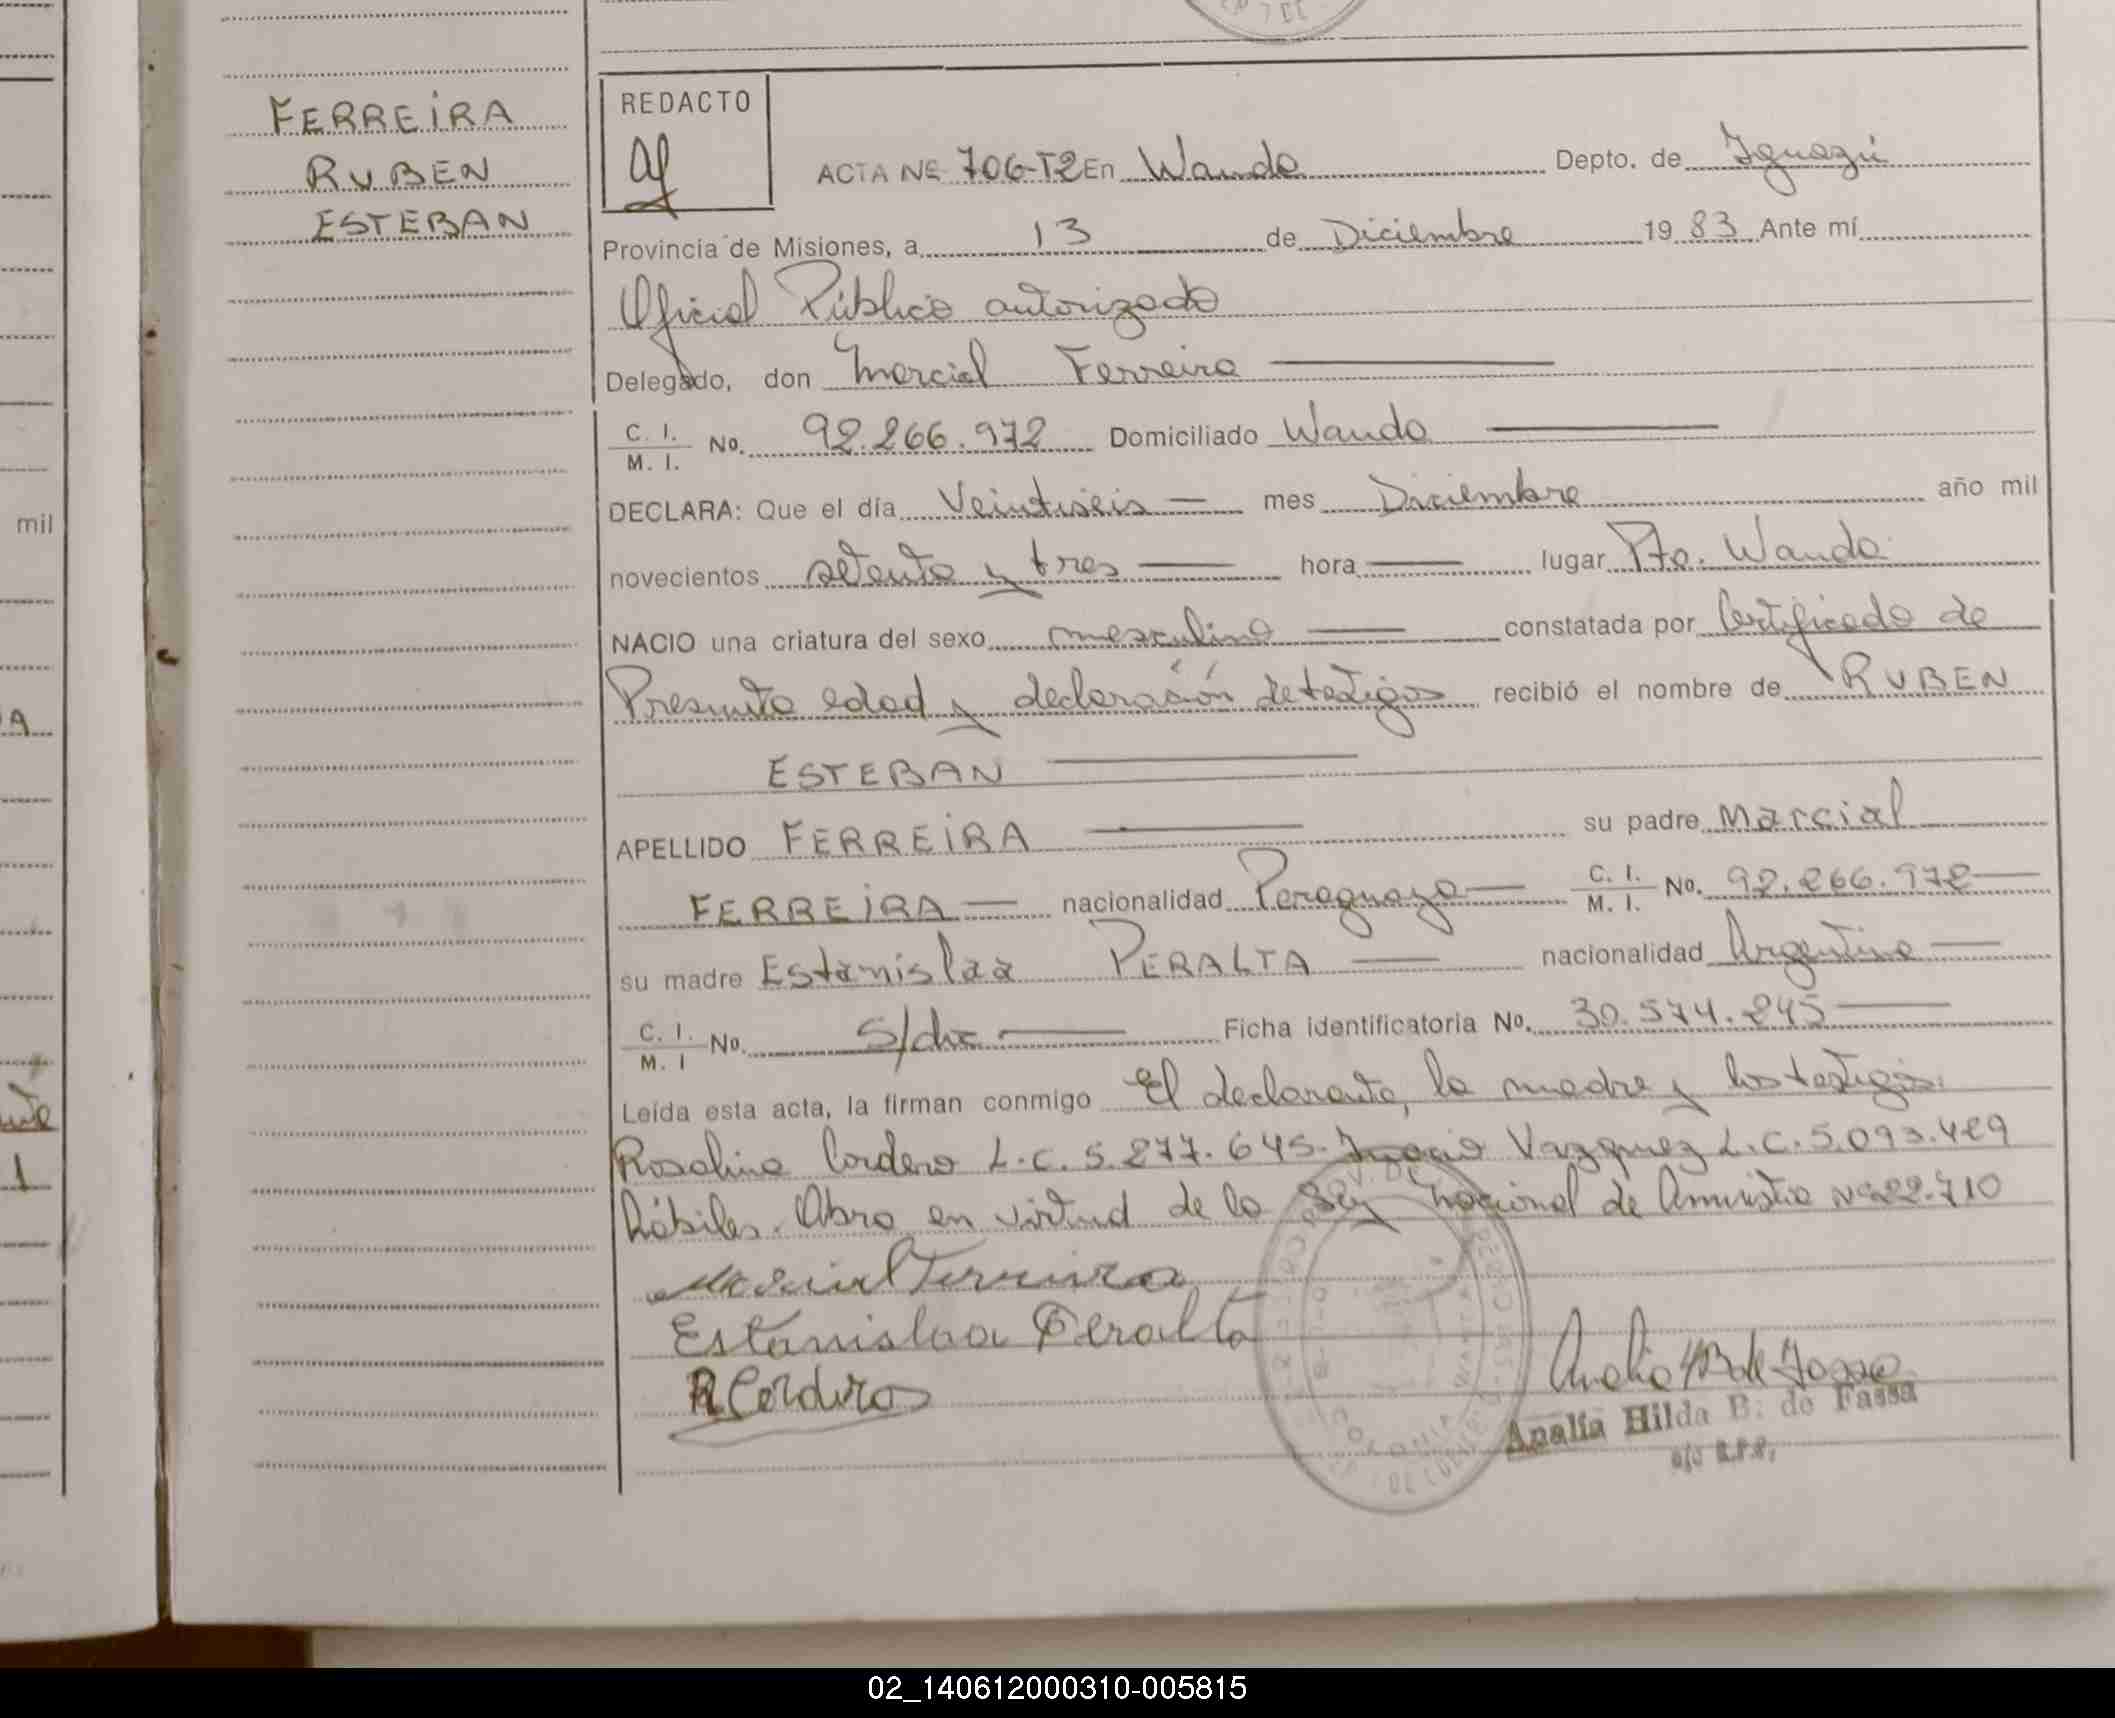 FERREIRA
RUBEN
ESTEBAN
REDACTO
ACTA Nº 706-T2 En Wanda Depto. de Iguazú
Provincia de Misiones, a 13 de Diciembre 1983 Ante mí
Oficial Público autorizado
Delegado, don Marcial Ferreira
C. I. M. I. No. 92.266.972 Domiciliado Wanda
DECLARA: Que el día Veintiseis mes Diciembre año mil
novecientos setenta y tres hora lugar Pto. Wanda
NACIO una criatura del sexo masculino constatada por Certificado de
Presunta edad y declaración de testigos recibió el nombre de RUBEN
ESTEBAN
APELLIDO FERREIRA su padre Marcial
FERREIRA nacionalidad Paraguaya C. I. M. I. No. 92.266.972
su madre Estanislaa PERALTA nacionalidad Argentina
C. I. M. I No. S/dc Ficha identificatoria No. 30.574.245
Leída esta acta, la firman conmigo El declarante, la madre y los testigos:
Rosalino Cordero L.C. 5.277.645. Vazquez L.C. 5.093.429
hábiles. Obra en virtud de la Ley nacional de Amnistia Nº 22.710
Marcial Ferreira
Estanislaa Peralta
R Corderos
Analía Hilda B. de Fassa
mil
A
1
02_140612000310-005815